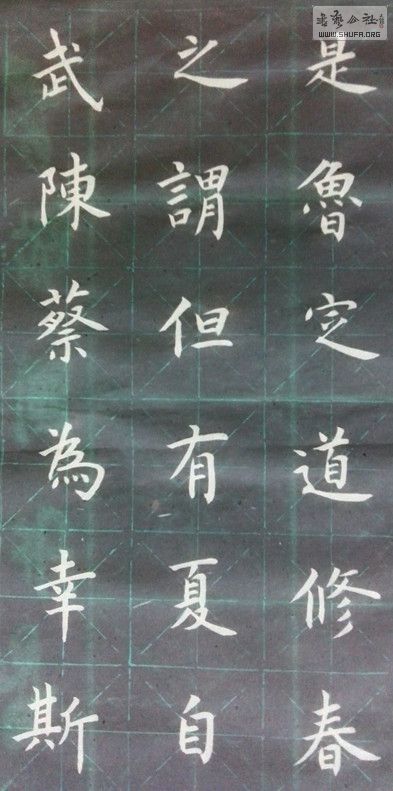 是魯定道修春
之謂但有夏自
武陳蔡為幸斯
书艺公社
WWW.SHUFA.ORG